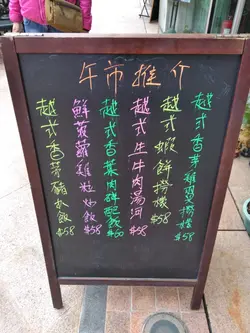 午市推介
越式香茅雞翼撈檬 $58
越式蝦餅撈檬 $58
越式生牛肉湯河 $58
越式香菜肉餅配飯 $60
鮮菠蘿雞粒炒飯 $58
越式香茅豬扒飯 $58